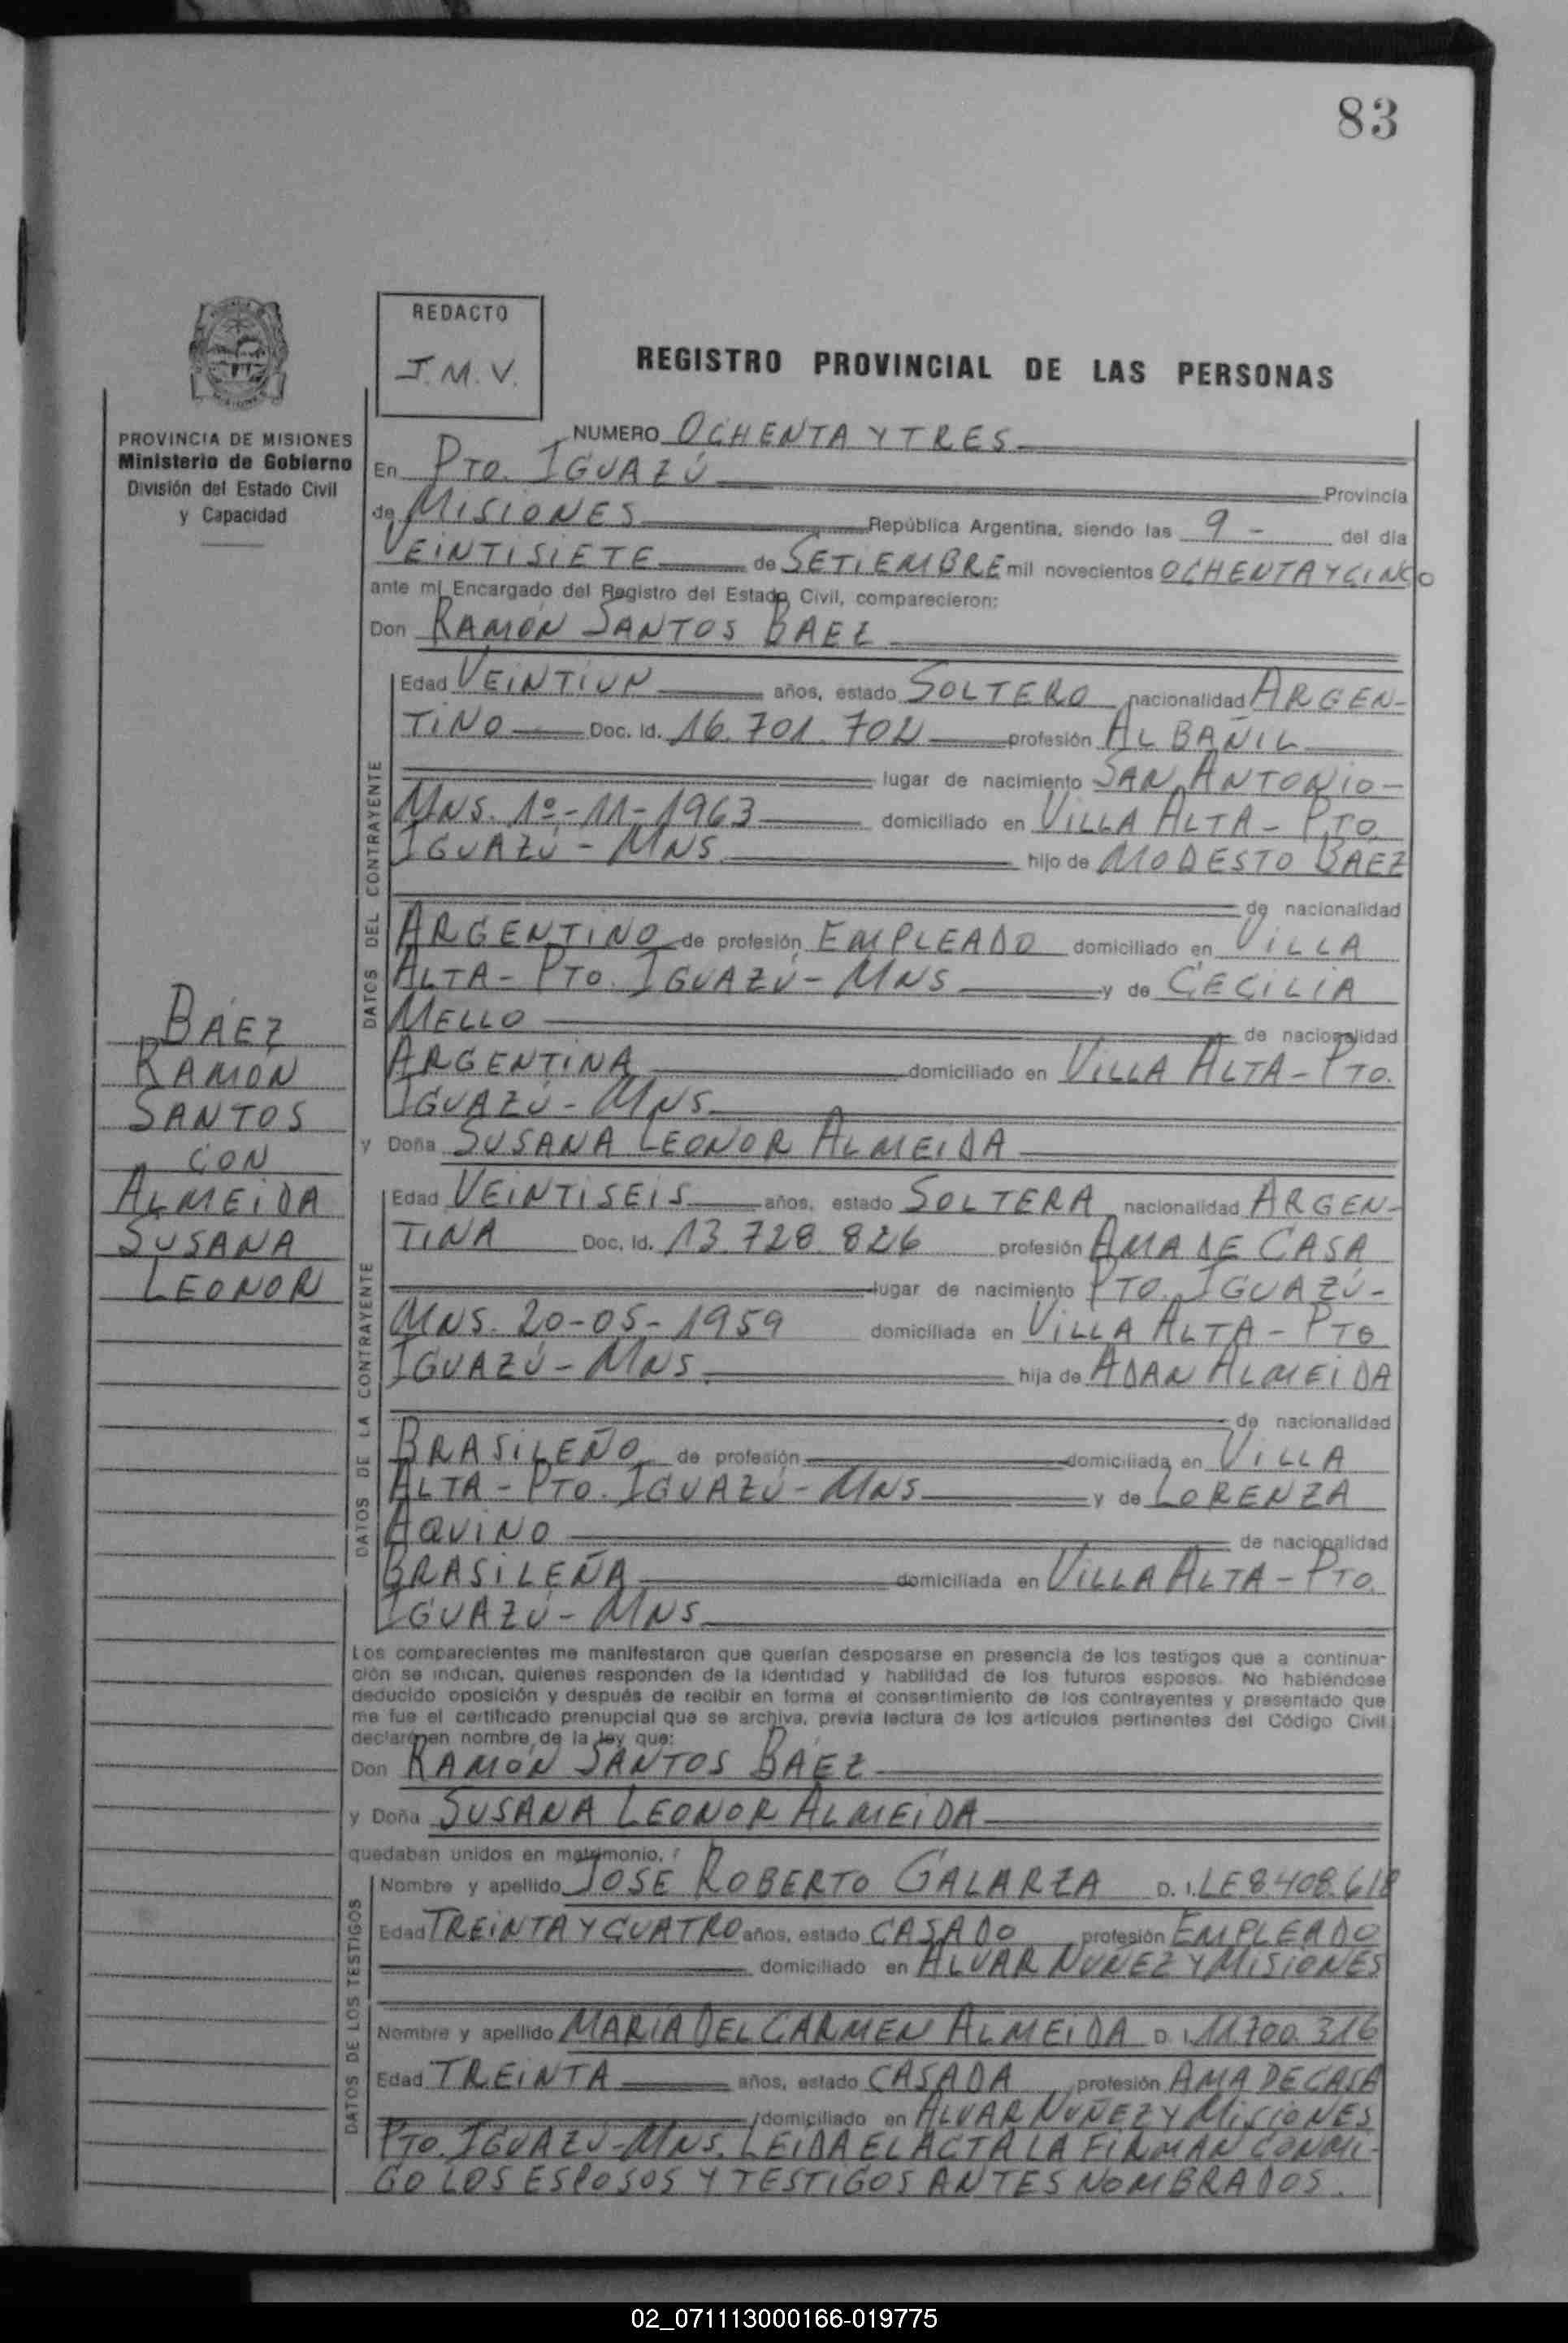 83
REDACTO
J.M.V.
REGISTRO PROVINCIAL DE LAS PERSONAS
PROVINCIA DE MISIONES
Ministerio de Gobierno
División del Estado Civil
y Capacidad
NUMERO OCHENTA Y TRES
En PTO. IGUAZÚ Provincia
de MISIONES República Argentina, siendo las 9 - del día
VEINTISIETE de SETIEMBRE mil novecientos OCHENTA Y CINCO
ante mí Encargado del Registro del Estado Civil, comparecieron:
Don RAMÓN SANTOS BÁEZ
DATOS DEL CONTRAYENTE
Edad VEINTIUN años, estado SOLTERO nacionalidad ARGEN-
TINO Doc. Id. 16.701.702 profesión ALBAÑIL
lugar de nacimiento SAN ANTONIO-
MNS. 1º-11-1963 domiciliado en VILLA ALTA - PTO.
IGUAZÚ - MNS hijo de MODESTO BÁEZ
de nacionalidad
ARGENTINO de profesión EMPLEADO domiciliado en VILLA
ALTA - PTO. IGUAZÚ - MNS y de CECILIA
MELLO de nacionalidad
ARGENTINA domiciliado en VILLA ALTA - PTO.
IGUAZÚ - MNS.
y Doña SUSANA LEONOR ALMEIDA
BÁEZ
RAMÓN
SANTOS
CON
ALMEIDA
SUSANA
LEONOR
DATOS DE LA CONTRAYENTE
Edad VEINTISEIS años, estado SOLTERA nacionalidad ARGEN-
TINA Doc. Id. 13.728.826 profesión AMA DE CASA
lugar de nacimiento PTO. IGUAZÚ-
MNS. 20-05-1959 domiciliada en VILLA ALTA - PTO
IGUAZÚ - MNS. hija de ADAN ALMEIDA
de nacionalidad
BRASILEÑO de profesión domiciliada en VILLA
ALTA - PTO. IGUAZÚ - MNS y de LORENZA
AQUINO de nacionalidad
BRASILEÑA domiciliada en VILLA ALTA - PTO.
IGUAZÚ - MNS.
Los comparecientes me manifestaron que querían desposarse en presencia de los testigos que a continua-
ción se indican, quienes responden de la identidad y habilidad de los futuros esposos. No habiéndose
deducido oposición y después de recibir en forma el consentimiento de los contrayentes y presentado que
me fue el certificado prenupcial que se archiva, previa lectura de los artículos pertinentes del Código Civil
declaré en nombre de la ley que:
Don RAMÓN SANTOS BÁEZ
y Doña SUSANA LEONOR ALMEIDA
quedaban unidos en matrimonio.
DATOS DE LOS TESTIGOS
Nombre y apellido JOSE ROBERTO GALARZA D. I. LE 8.408.618
Edad TREINTA Y CUATRO años, estado CASADO profesión EMPLEADO
domiciliado en ALVAR NUÑEZ Y MISIONES
Nombre y apellido MARÍA DEL CARMEN ALMEIDA D. I. 11.700.316
Edad TREINTA años, estado CASADA profesión AMA DE CASA
domiciliado en ALVAR NUÑEZ Y MISIONES
PTO. IGUAZÚ - MNS. LEIDA EL ACTA LA FIRMAN CONMI-
GO LOS ESPOSOS Y TESTIGOS ANTES NOMBRADOS.
02_071113000166-019775